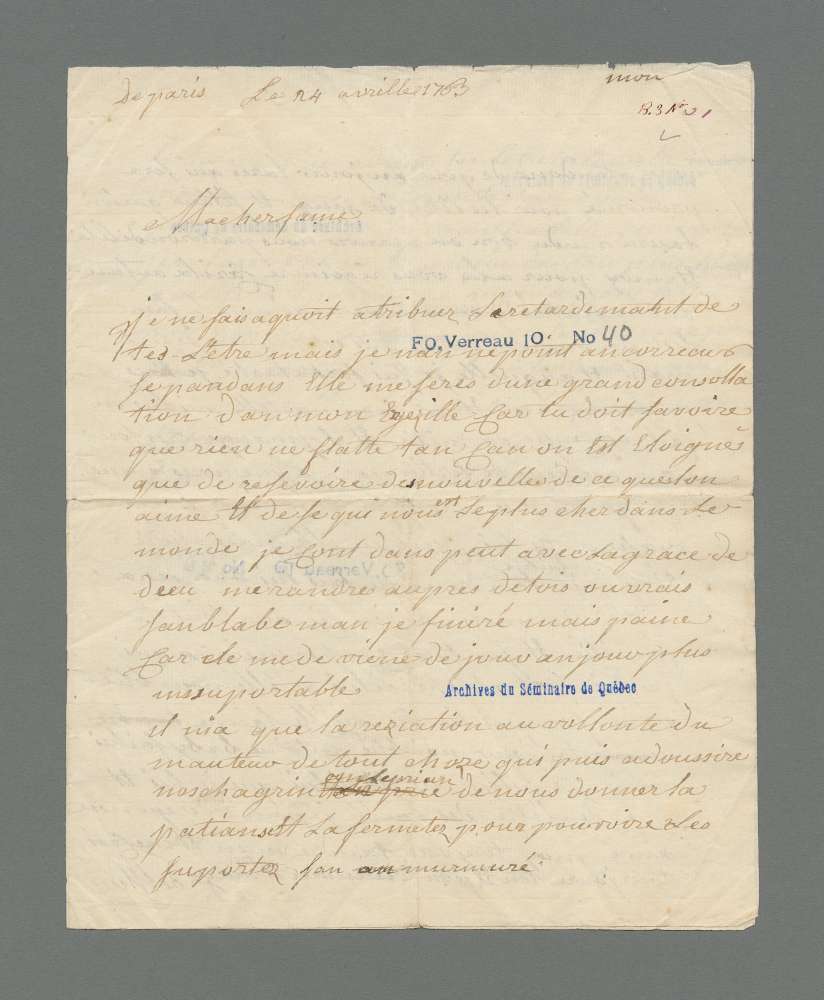 de paris Le 24 avrille 1763
mon
B. 3 No 21
Ma cher fame
je ne sais a quoit atribuer Le retardemant de
FO. Verreau 10. No 40
tes Letre mais je nan ne point ancorreceu
sepandans Elle me seres dune grand consolla
tion dan mon Car tu doit savoire
que rien ne flatte tan Can on Est Eloignés
que de resevoire de nouvelle de ce quelon
aime Et de se qui nous est Le plus cher dans Le
monde je Cont dans peut avec La grace de
dieu me randre aupres de tois ou vrais
sanblabe man je finiré mais paine
Car ele me de viene de jour an jour plus
insuportable
Archives du Séminaire de Québec
il nia que la reziation au vollonte du
mauteur de tout choze qui puis adoussire
nos chagrin de nous donner la
patians Et La fermetez pour pouvoire Les
suportez san murmuré.